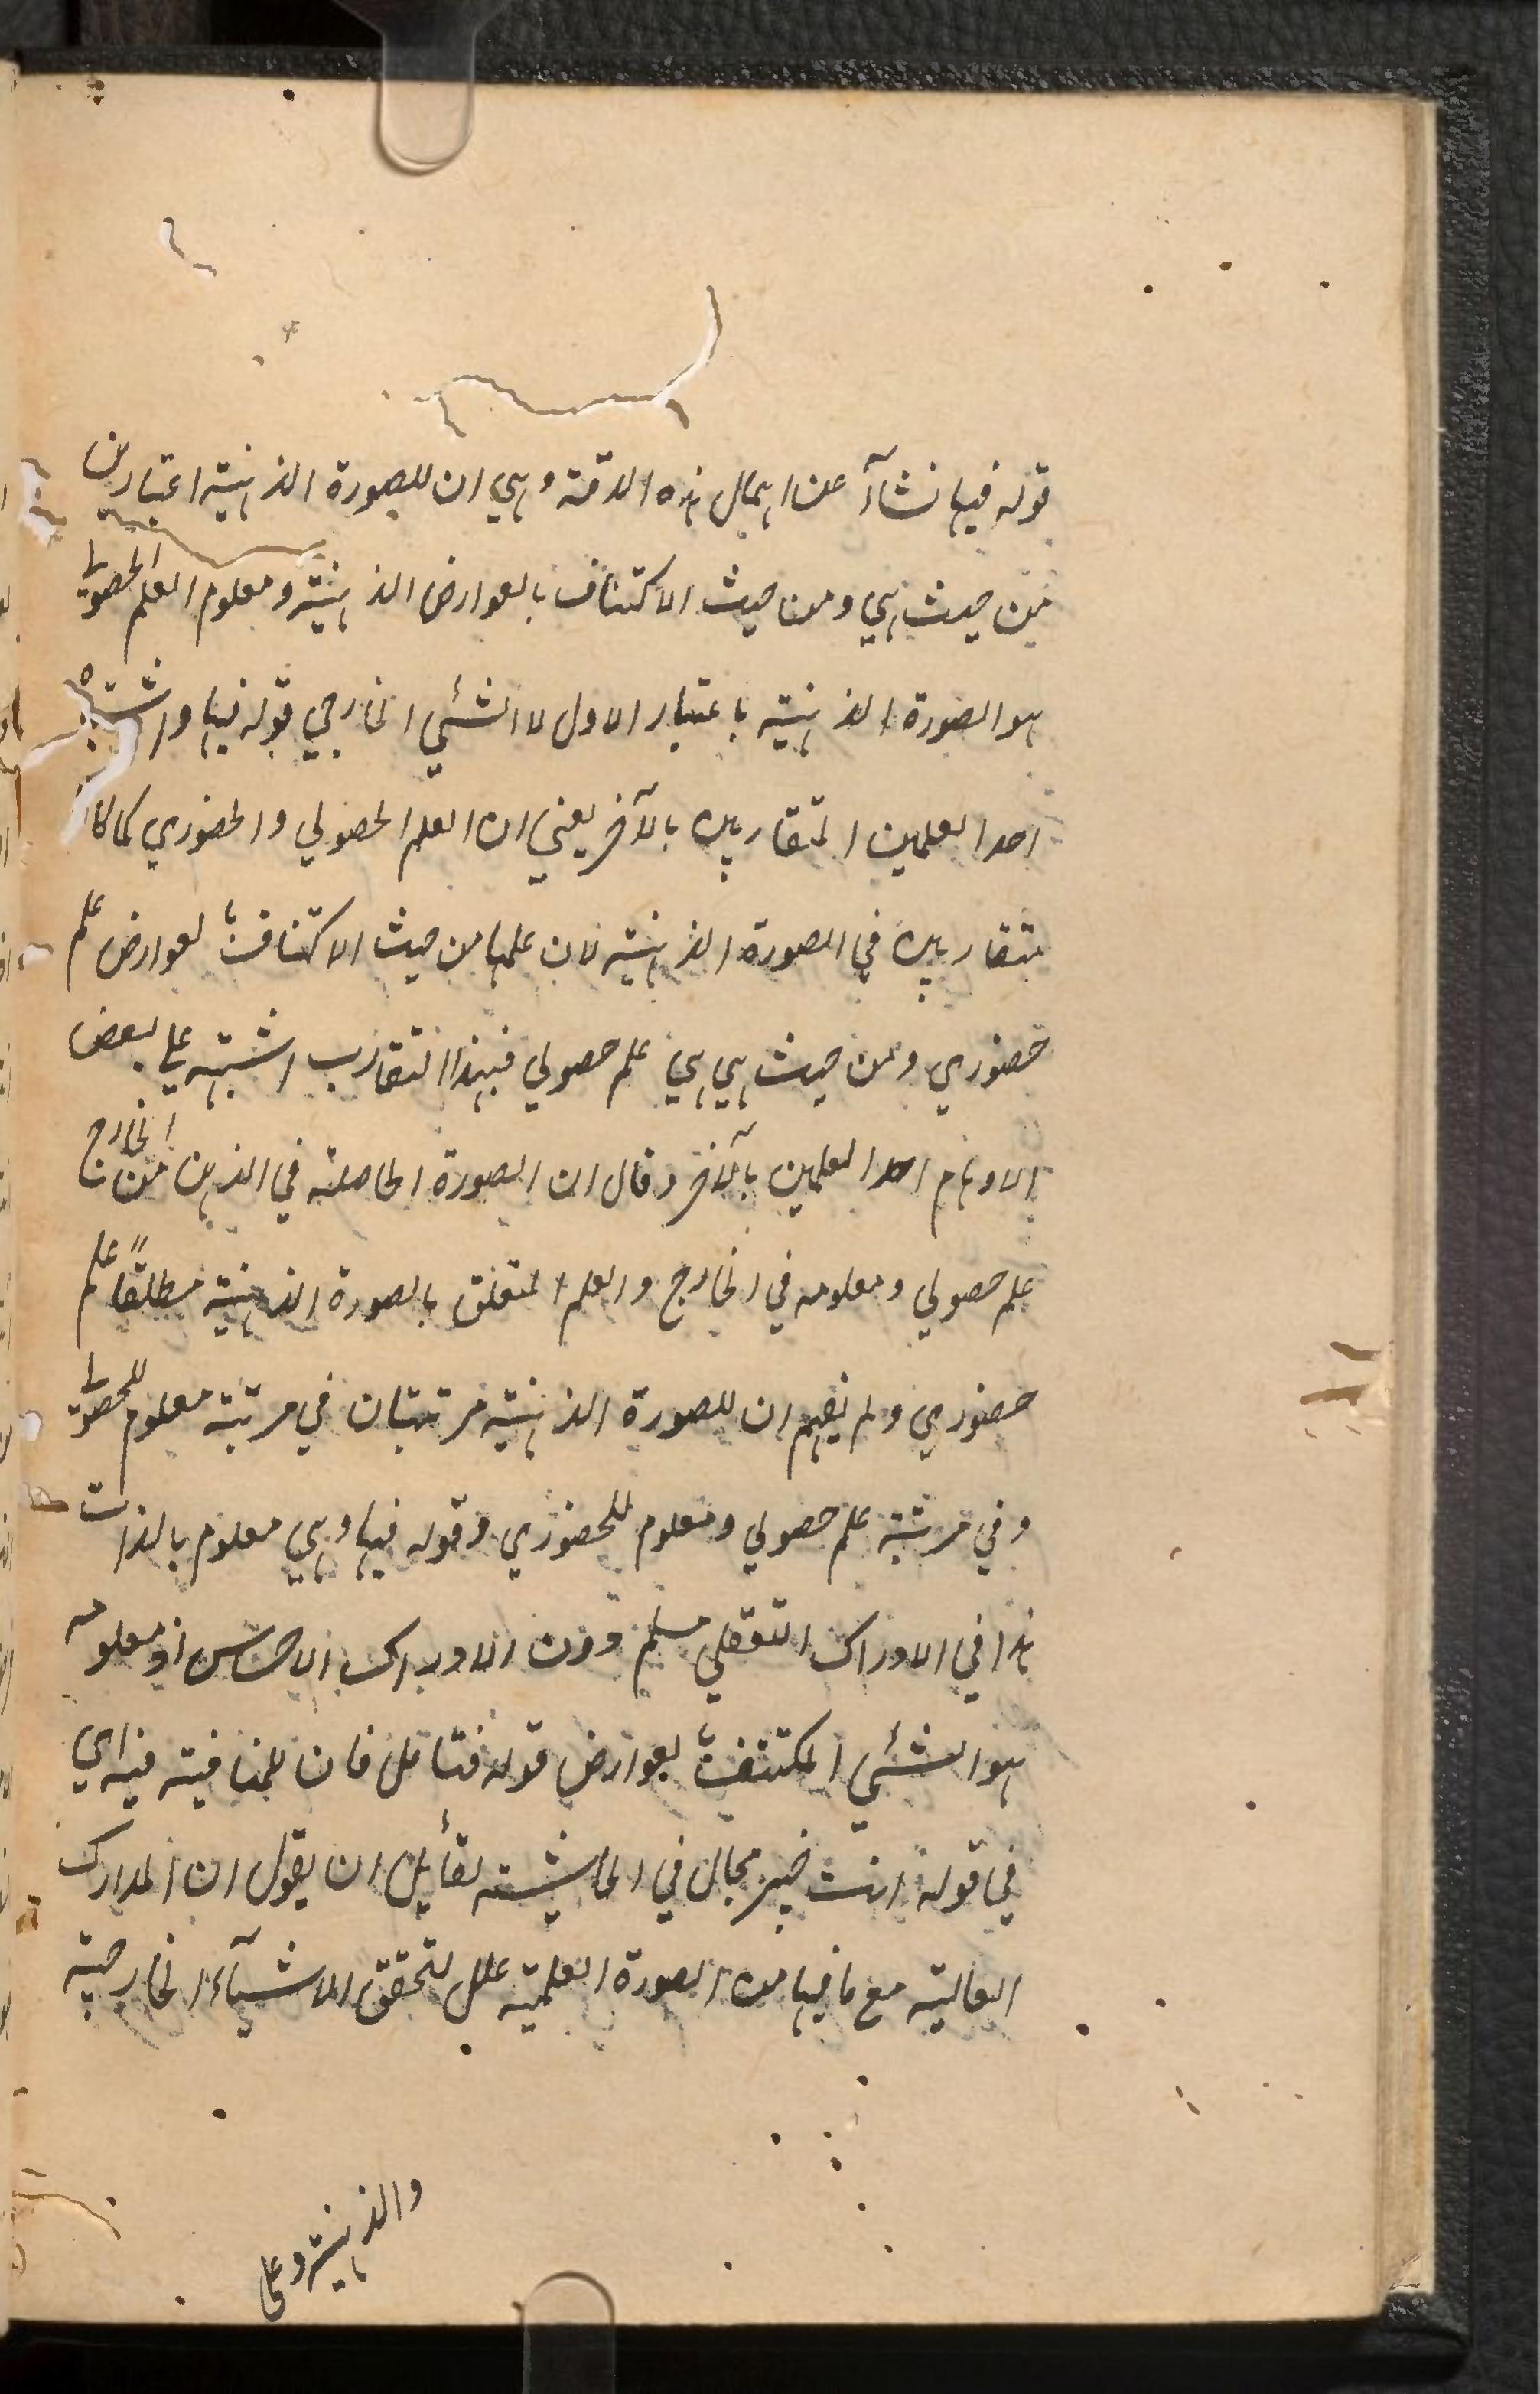 قوله فيها نشآ عن اهمال هذه الدقة وهي ان للصورة الذهنية اعتبارين
من حيث هي ومن حيث الاكتناف بالعوارض الذهنية ومعلوم العلم الحصولي
هو الصورة الذهنية باعتبار الاول لا الشئي الخارجي قوله فيها واشتبه
احد العلمين المتقاربين بالآخر يعني ان العلم الحصولي والحضوري كما كانا
متقاربين في الصورة الذهنية لان علمها من حيث الاكتناف بالعوارض علم
حضوري ومن حيث هي هي علم حصولي فبهذا التقارب اشتبه على بعض
الاوهام احد العلمين بالآخر وقال ان الصورة الحاصلة في الذهن من الخارج
علم حصولي ومعلومه في الخارج والعلم المتعلق بالصورة الذهنية مطلقًا علم
حضوري ولم يفهم ان للصورة الذهنية مرتبتان في مرتبة معلوم للحصولي
وفي مرتبة علم حصولي ومعلوم للحضوري وقوله فيها وهي معلوم بالذات
هذا في الادراك التعقلي مسلم دون الادراك الاحساس اذ معلومه
هو الشئي المكتنف بالعوارض قوله فتامل فان للمنافية فيه اي
في قوله انت خبير مجال في الحاشية لقائل ان يقول ان المدارك
العالية مع ما فيها من الصورة العلمية علل لتحقق الاشيآء الخارجية
والذهنية وعلى